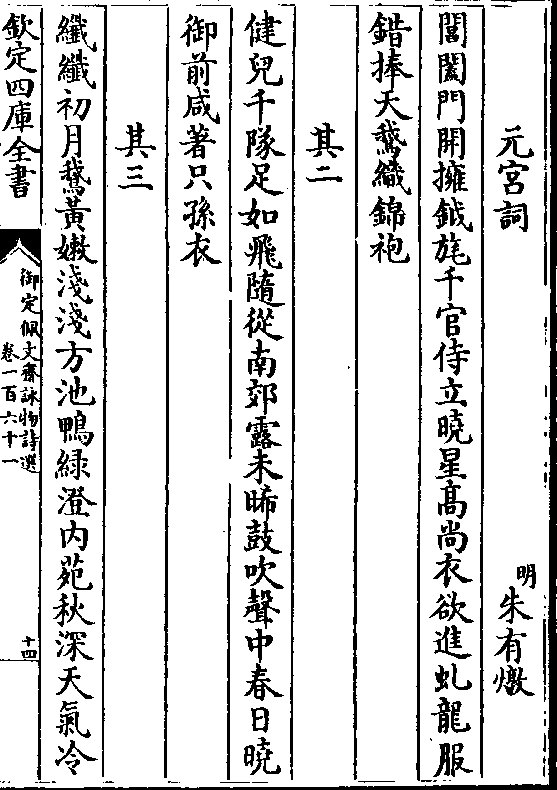 元宮詞　明　朱有燉
閶闔門開擁鉞旄千官侍立曉星高尚衣欲進虬龍服
錯捧天鵞織錦袍
其二
健兒千隊足如飛隨從南郊露未晞鼓吹聲中春日曉
御前咸著只孫衣
其三
纖纖初月鵞黃嫩淺淺方池鴨緑澄内苑秋深天氣冷
欽定四庫全書
御定佩文齋詠物詩選
卷一百六十一
十四